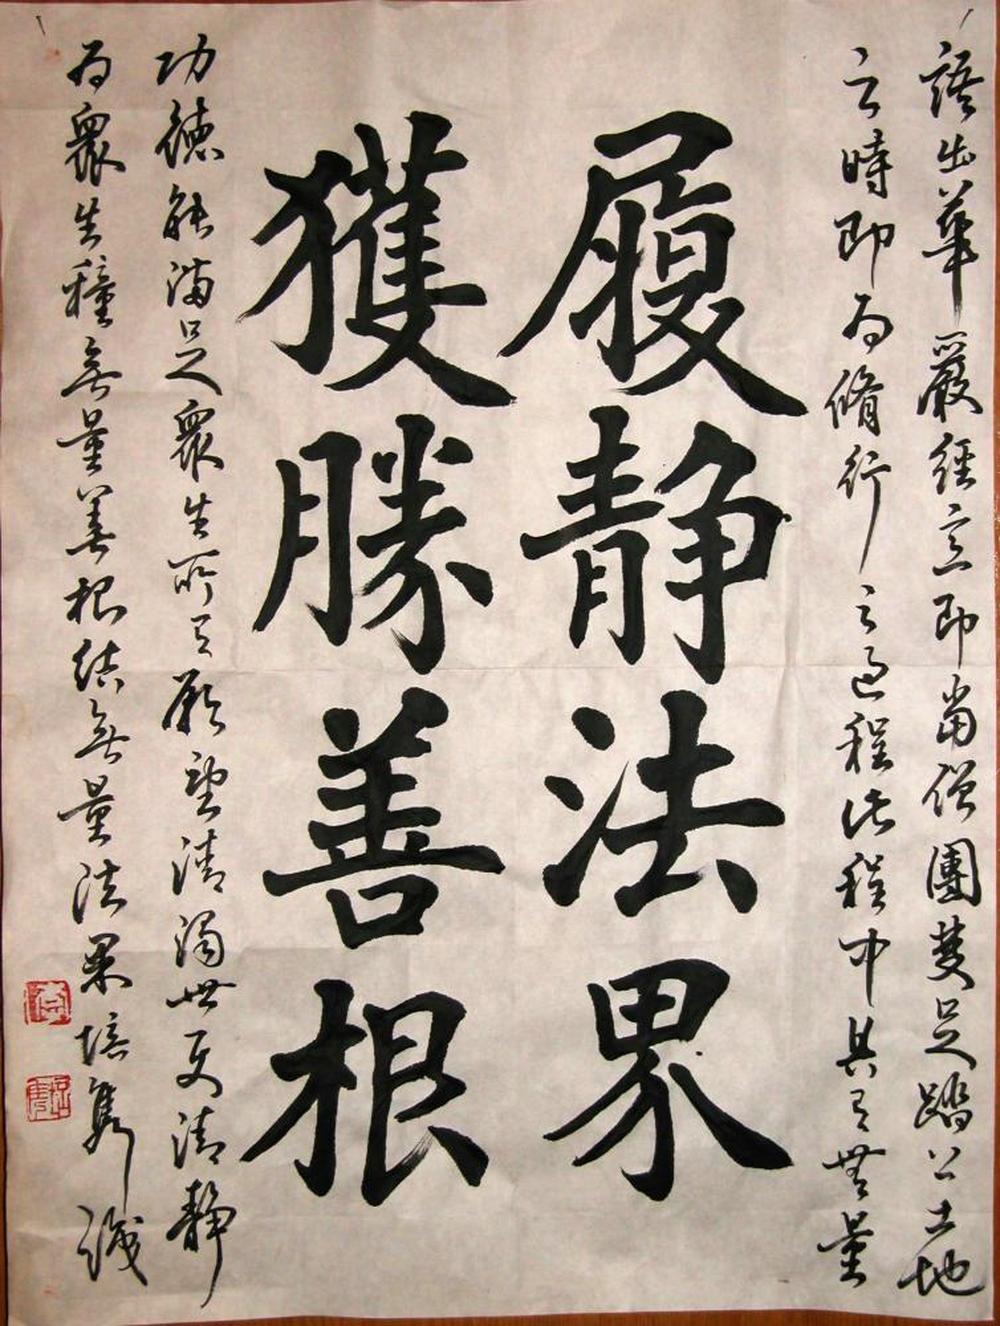 語出華嚴經意即當僧團雙足踏上土地
之時即為脩行之過程此程中具有無量
履靜法界
獲勝善根
功德能滿足眾生所有願望清濁世更清靜
為眾生種無量善根結無量法果培雋識